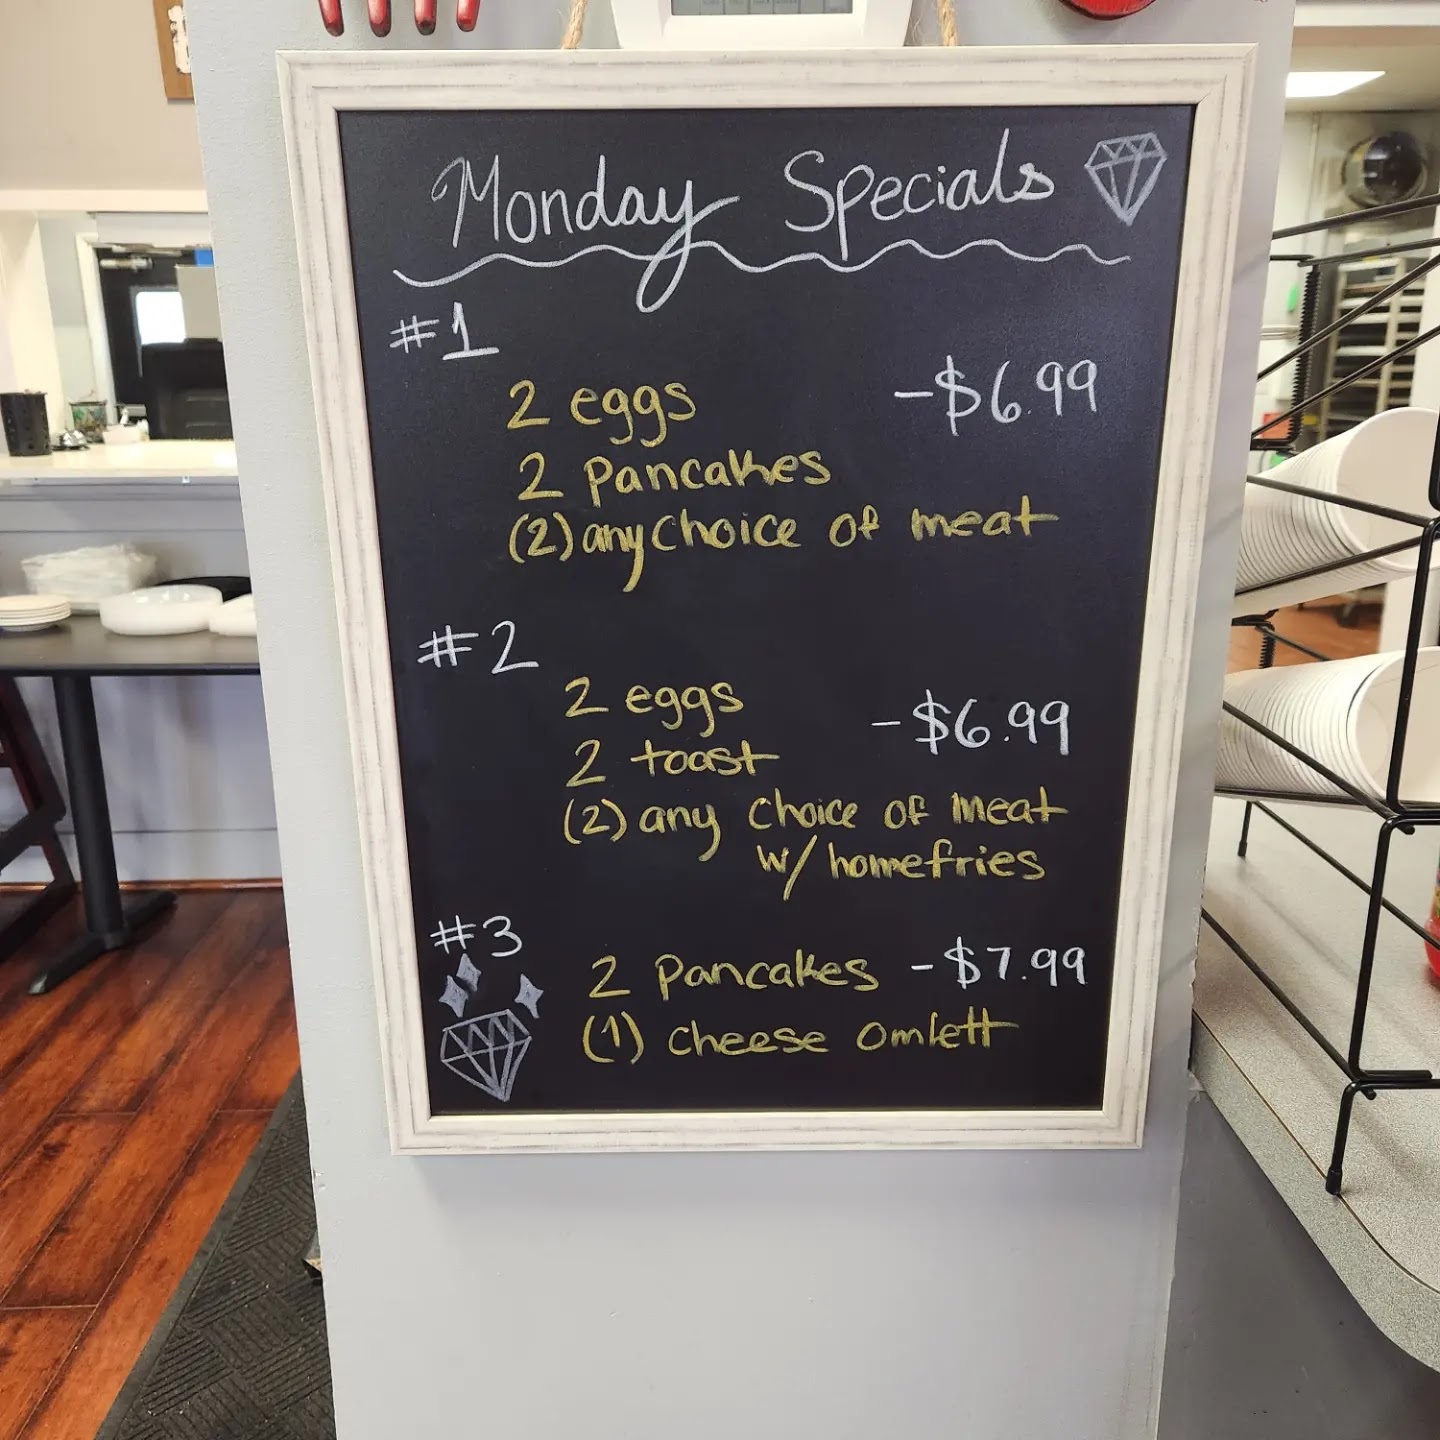 Monday Specials
#1
2 eggs -$6.99
2 pancakes
(2) any choice of meat
#2
2 eggs -$6.99
2 toast
(2) any choice of meat
w/ homefries
#3
2 pancakes -$7.99
(1) cheese omlett